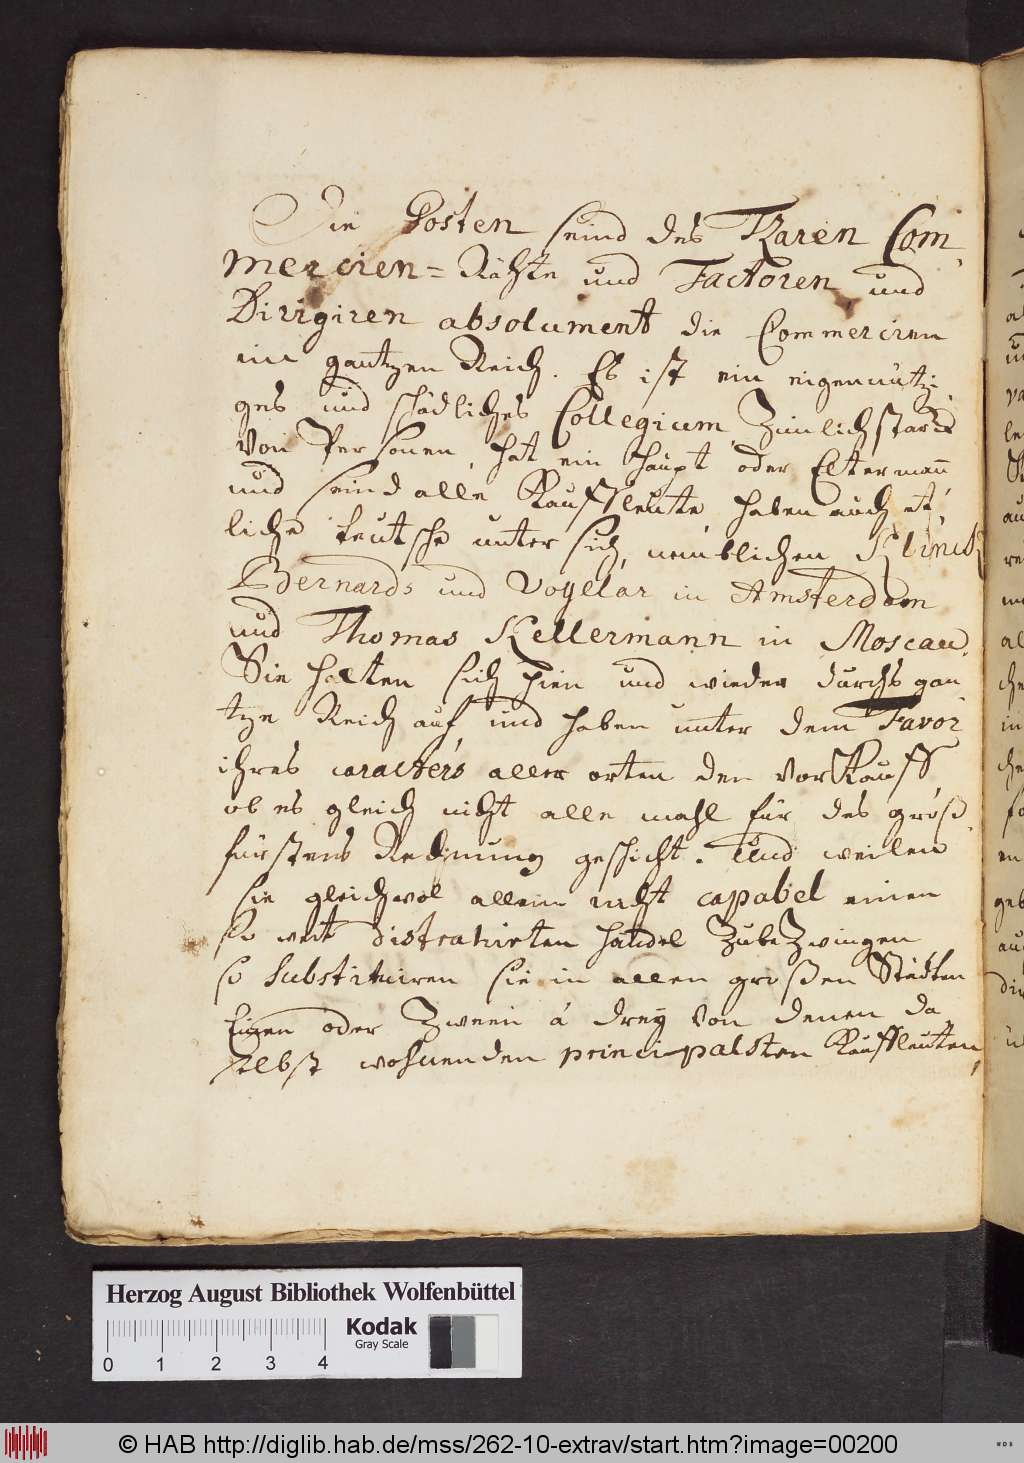 Die Gosten seind des Tzaren Com
mercien = Rähte und Factoren und
Dirigiren absolument die Commercien
im gantzen Reich. Es ist ein eigennützi
ges und schädliches Collegium Zimlich starck
von Personen, hat ein Haupt oder Eltermann
und seind alle Kauffleute haben auch et
liche teutsche unter sich, nemblichen Klinck
Bernards und Vogelar in Amsterdam
und Thomas Kellermann in Moscau.
Sie halten sich hien und wieder durchs gan
tze Reich auf, und haben unter dem Favor
ihres caractérs aller orten den VorKauff,
ob es gleich nicht alle mahl für des groß
fürstens Rechnung geschicht. Und weilen
sie gleichwol allein nicht capabel einen
so weit distrahirten Handel ZubeZwingen
so Substituiren sie in allen großen Städten
Einen oder Zween à dreÿ von denen da
selbst wohnenden principalsten Kauffleuten,
Herzog August Bibliothek Wolfenbüttel
Kodak
Gray Scale
0 1 2 3 4
© HAB http://diglib.hab.de/mss/262-10-extrav/start.htm?image=00200